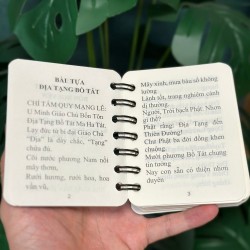 BÀI TỰA
ĐỊA TẠNG BỒ TÁT
CHÍ TÂM QUY MẠNG LỄ:
U Minh Giáo Chủ Bổn Tôn
Địa Tạng Bồ Tát Ma Ha Tát.
Lạy đức từ bi đại Giáo Chủ
"Địa" là dày chắc, "Tạng"
chứa đủ.
Cõi nước phương Nam nổi
mây thơm,
Rưới hương, rưới hoa, hoa
vần vũ.
2
Mây xinh, mưa báu số không
lường.
Lành tốt, trang nghiêm cảnh
dị thường.
Người, Trời bạch Phật: Nhơn
gì thế?
Phật rằng: Địa Tạng đến
Thiên Đường!
Chư Phật ba đời đồng khen
chuộng.
Mười phương Bồ Tát chung
tin tưởng
Nay con sẵn có thiện nhơn
duyên
3